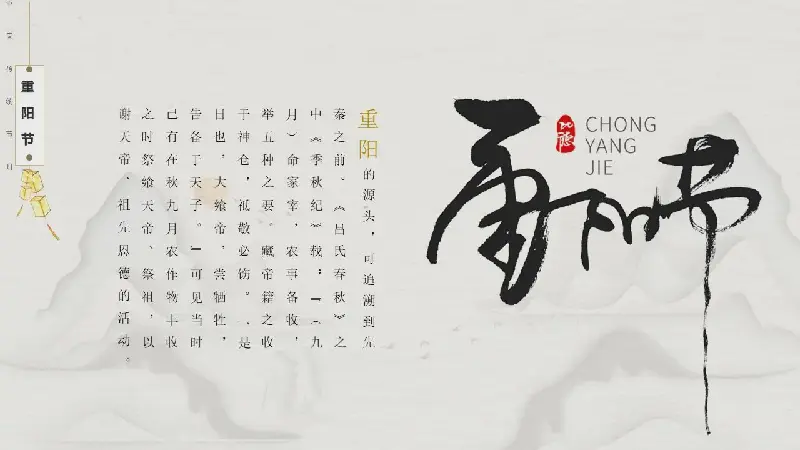 重阳节
CHONG
YANG
JIE
重阳的源头，可追溯到先
秦之前。《吕氏春秋》之
中《季秋纪》载：“（九
月）命家宰，农事备收，
举五种之要。藏帝籍之收
于神仓，祗敬必饬。”是
日也，大飨帝，尝牺牲，
告备于天子。”可见当时
已有在秋九月农作物丰收
之时祭飨天帝、祭祖，以
谢天帝、祖先恩德的活动。
重阳节
中国传统节日